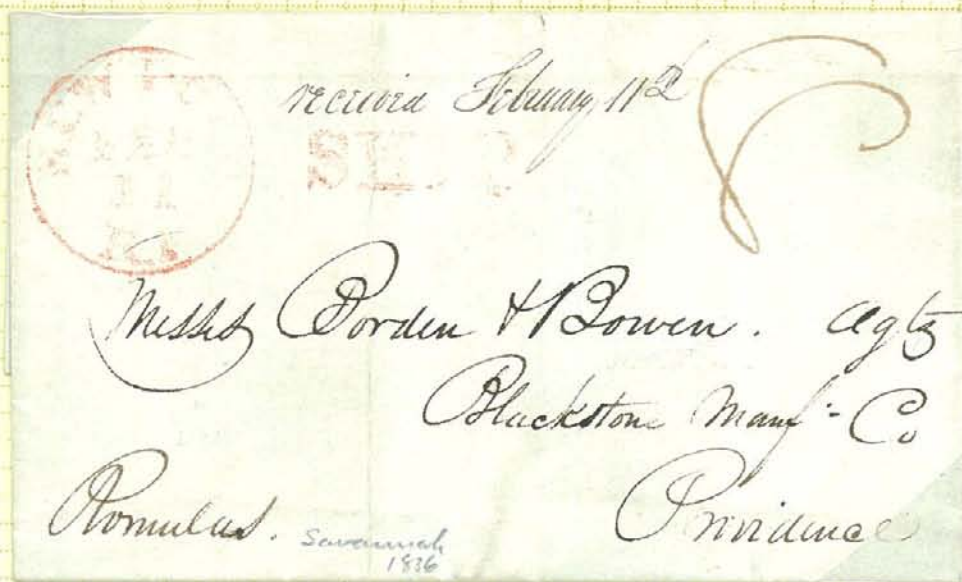 received February 11th
SHIP
11
R.I
8
Messrs Borden & Bowen. Agts
Blackstone Manf- Co
Providence
Romulus.
Savannah
1836